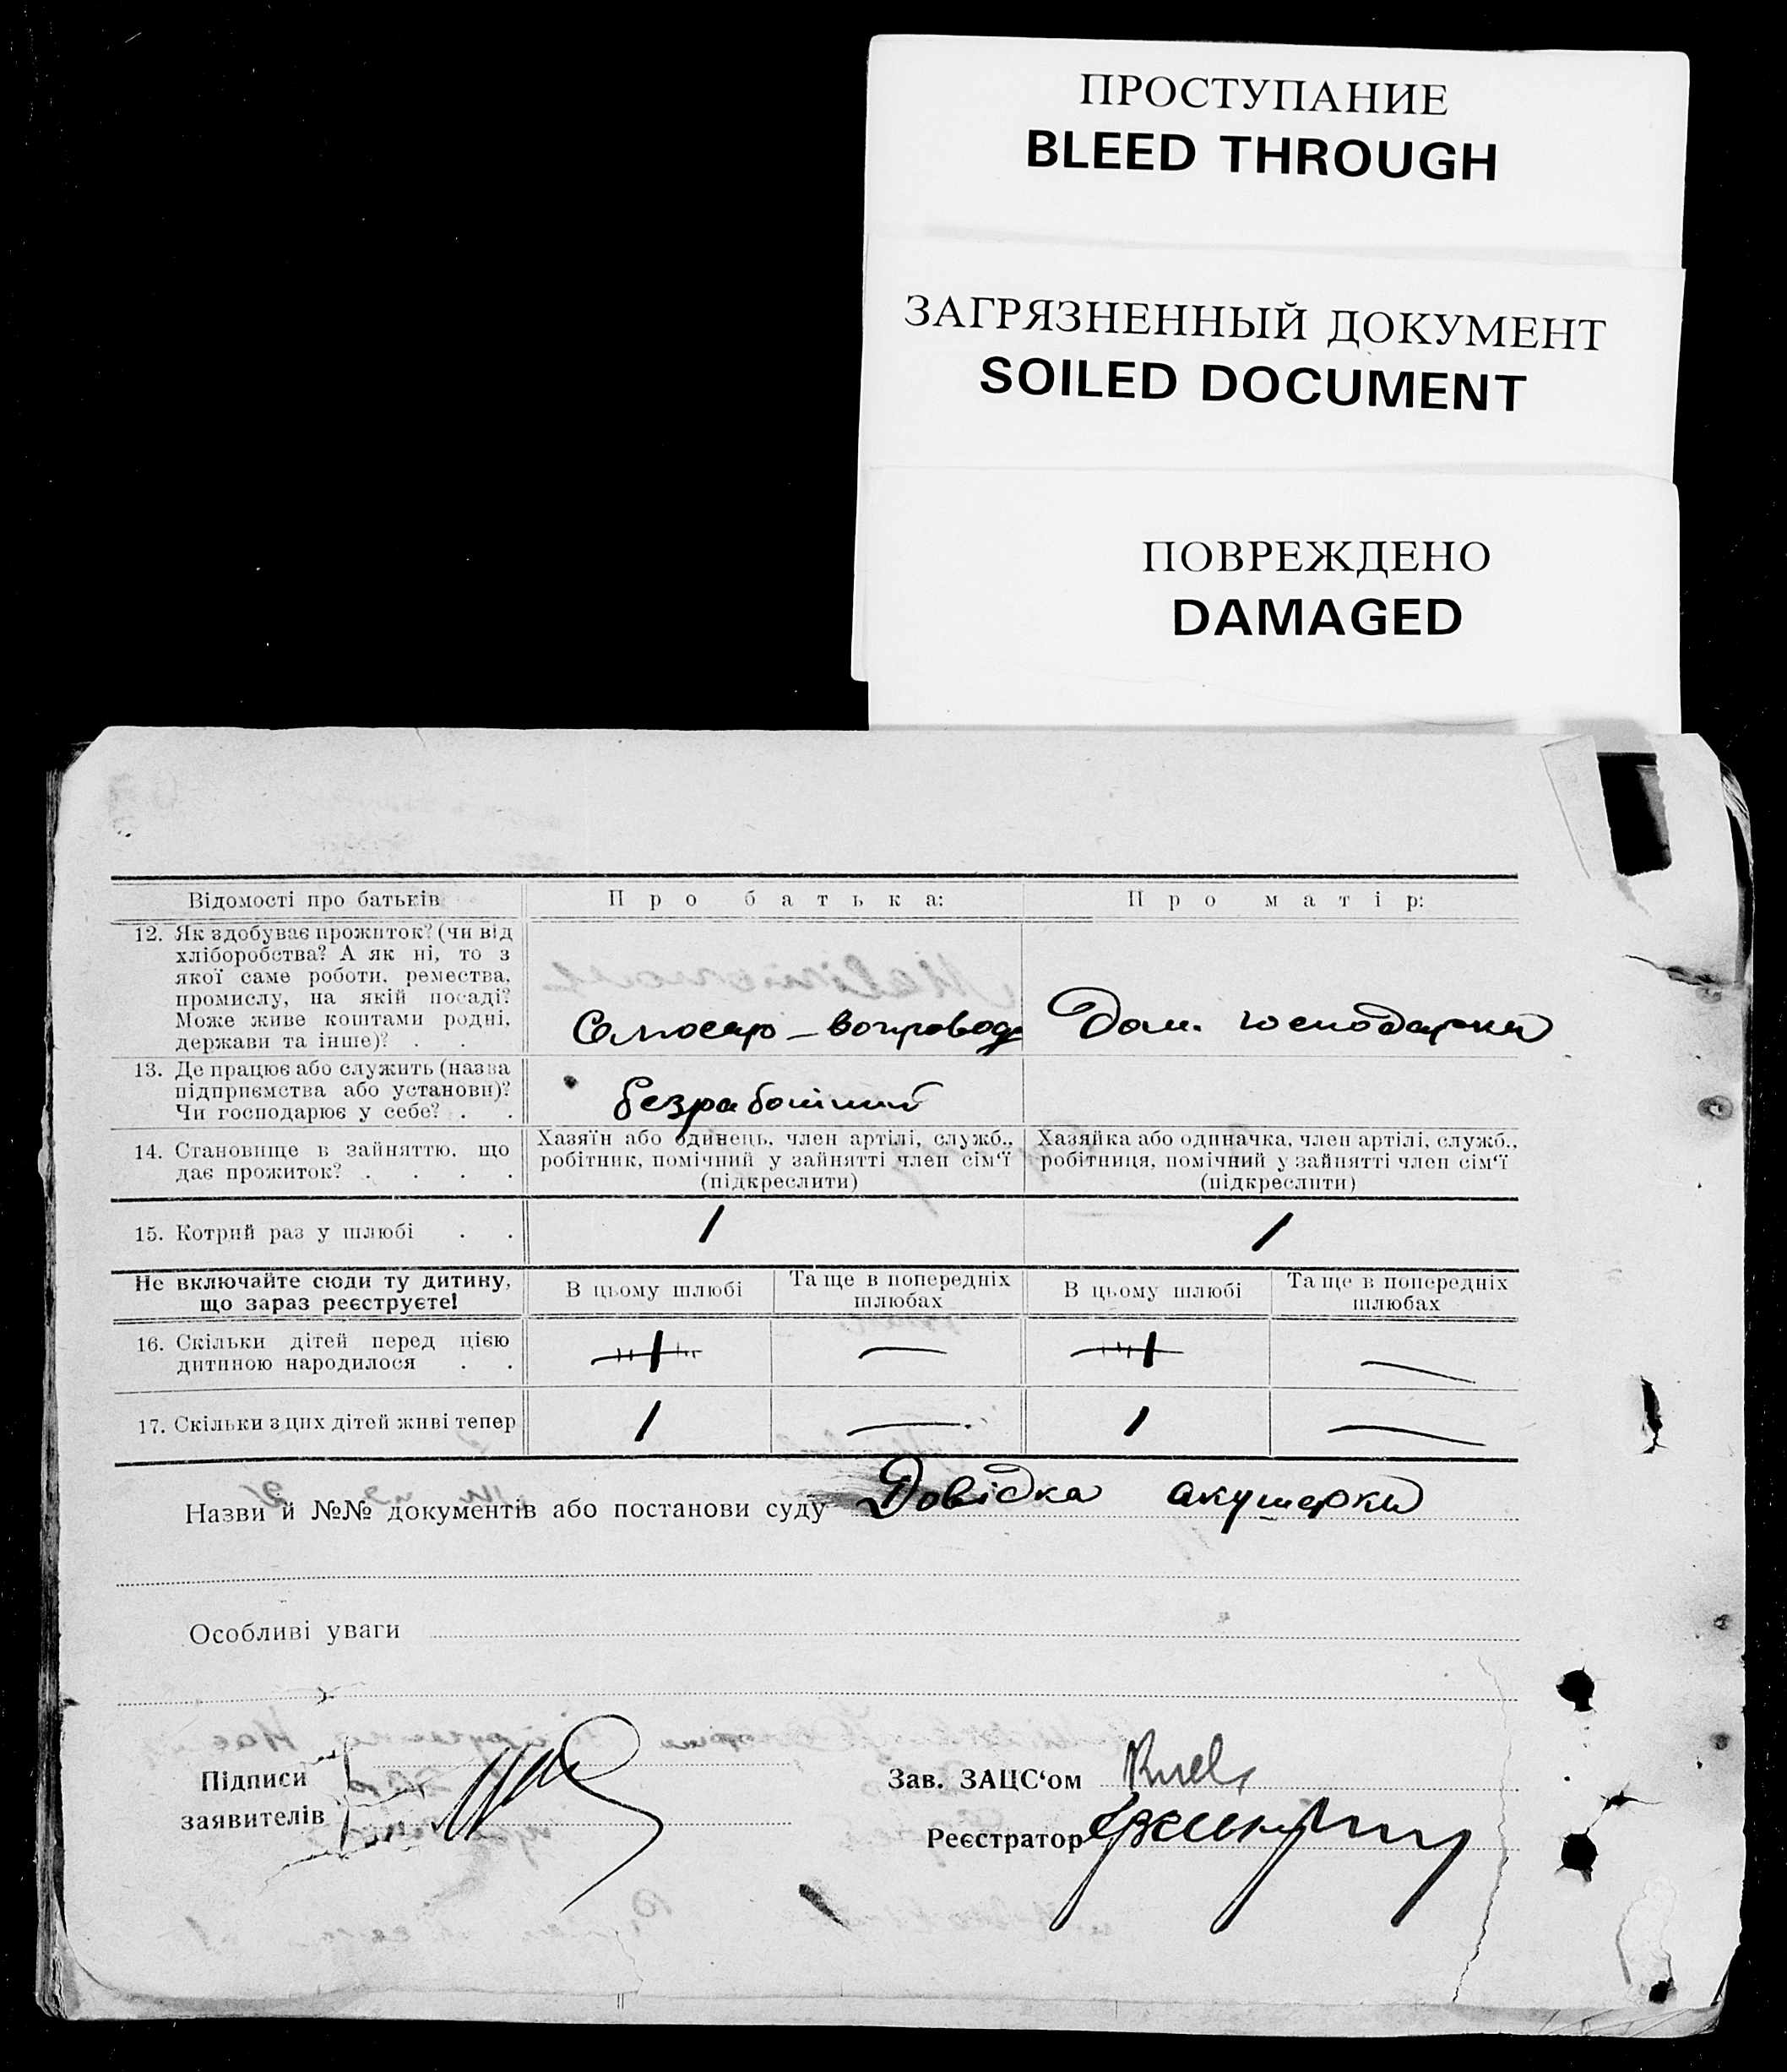 ПРОСТУПАНИЕ
BLEED THROUGH
ЗАГРЯЗНЕННЫЙ ДОКУМЕНТ
SOILED DOCUMENT
ПОВРЕЖДЕНО
DAMAGED
Відомості про батьків
Про батька:
Про матір:
12. Як здобуває прожиток? (чи від
хліборобства? А як ні, то з
якої саме роботи, ремества,
промислу, на якій посаді?
Може живе коштами родні,
держави та інше)? . .
Слюсар – вопровод
Дом. господарка
13. Де працює або служить (назва
підприємства або установи)?
Чи господарює у себе? . .
безработний
14. Становище в зайняттю, що
дає прожиток? . . . .
Хазяїн або одинець, член артілі, служб.,
робітник, помічний у зайнятті член сім'ї
(підкреслити)
Хазяйка або одиначка, член артілі, служб.,
робітниця, помічний у зайнятті член сім'ї
(підкреслити)
15. Котрий раз у шлюбі . .
1
1
Не включайте сюди ту дитину,
що зараз реєструєте!
В цьому шлюбі
Та ще в попередніх
шлюбах
В цьому шлюбі
Та ще в попередніх
шлюбах
16. Скільки дітей перед цією
дитиною народилося . .
1
—
1
—
17. Скільки з цих дітей живі тепер
1
—
1
—
Назви й №№ документів або постанови суду Довідка акушерки
Особливі уваги
Підписи
заявителів
Зав. ЗАЦС'ом
Реєстратор